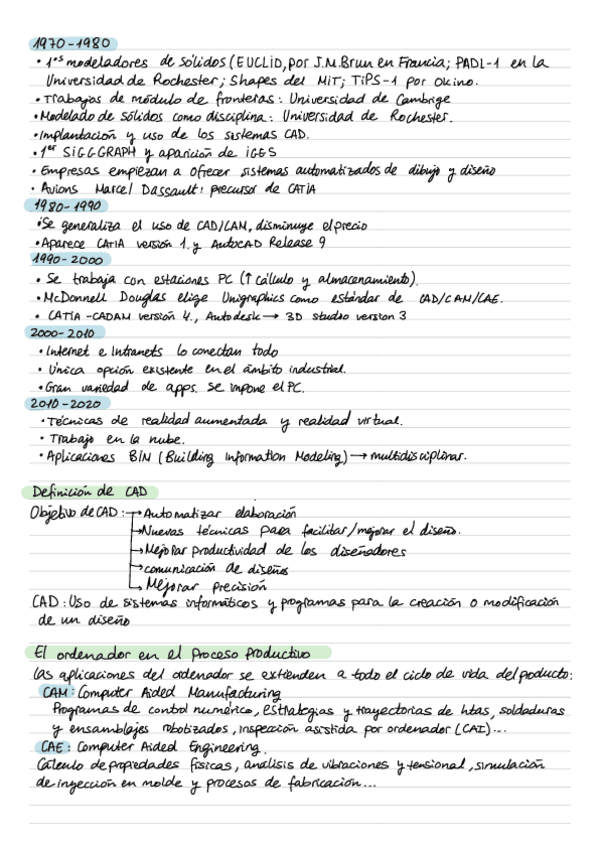 1970-1980
• 1ºs modeladores de sólidos (EUCLID, por J.M. Brun en Francia; PADL-1 en la
Universidad de Rochester; Shapes del MIT; TIPS-1 por Okino.
• Trabajos de módulo de fronteras: Universidad de Cambrige
• Modelado de sólidos como disciplina: Universidad de Rochester.
• Implantación y uso de los sistemas CAD.
• 1er SIGGGRAPH y aparición de IGES
• Empresas empiezan a ofrecer sistemas automatizados de dibujo y diseño
• Avions Marcel Dassault: precursor de CATIA
1980-1990
• Se generaliza el uso de CAD/CAM, disminuye el precio
• Aparece CATIA versión 1. y AutoCAD Release 9
1990-2000
• Se trabaja con estaciones PC (↑ cálculo y almacenamiento).
• McDonnell Douglas elige Unigraphics como estándar de CAD/CAM/CAE.
• CATIA-CADAM versión 4., Autodesk → 3D studio version 3
2000-2010
• Internet e Intranets lo conectan todo
• Única opción existente en el ámbito industrial.
• Gran variedad de apps. Se impone el PC.
2010-2020
• Técnicas de realidad aumentada y realidad virtual.
• Trabajo en la nube.
• Aplicaciones BIN (Building Information Modeling) → multidisciplinar.
Definición de CAD
Objetivo de CAD: → Automatizar elaboración
→ Nuevas técnicas para facilitar/mejorar el diseño.
→ Mejorar productividad de los diseñadores
→ comunicación de diseños
→ Mejorar precisión
CAD: Uso de sistemas informáticos y programas para la creación o modificación
de un diseño
El ordenador en el Proceso Productivo
Las aplicaciones del ordenador se extienden a todo el ciclo de vida del producto:
CAM: Computer Aided Manufacturing
Programas de control numérico, estrategias y trayectorias de htas, soldaduras
y ensamblajes robotizados, inspección asistida por ordenador (CAI)...
CAE: Computer Aided Engineering.
Cálculo de propiedades físicas, análisis de vibraciones y tensional, simulación
de inyección en molde y procesos de fabricación...